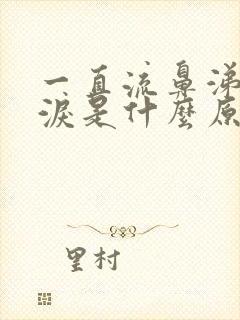 一直流鼻涕
淚是什麼原
里村